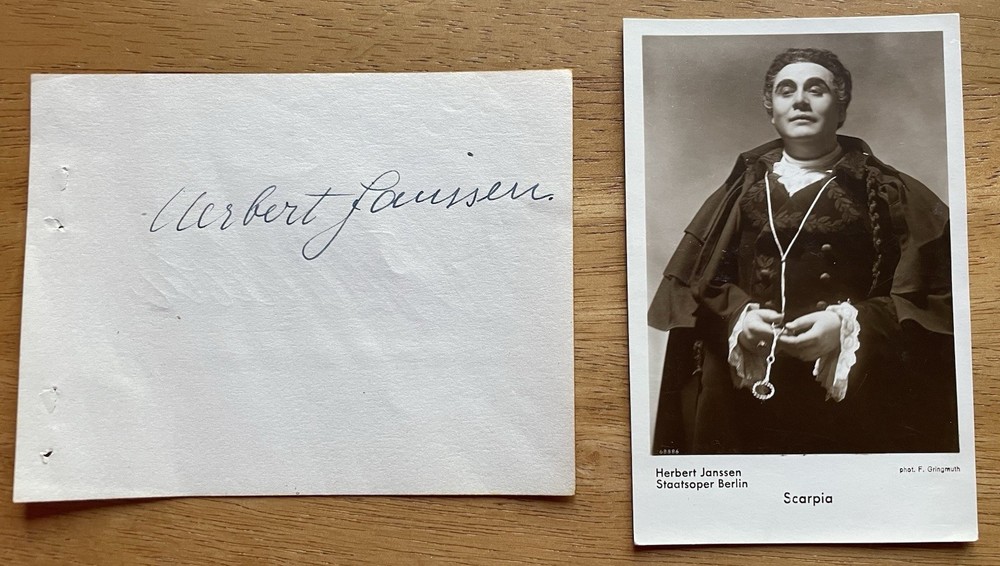 Herbert Janssen.
68886
Herbert Janssen
Staatsoper Berlin
phot. F. Gringmuth
Scarpia